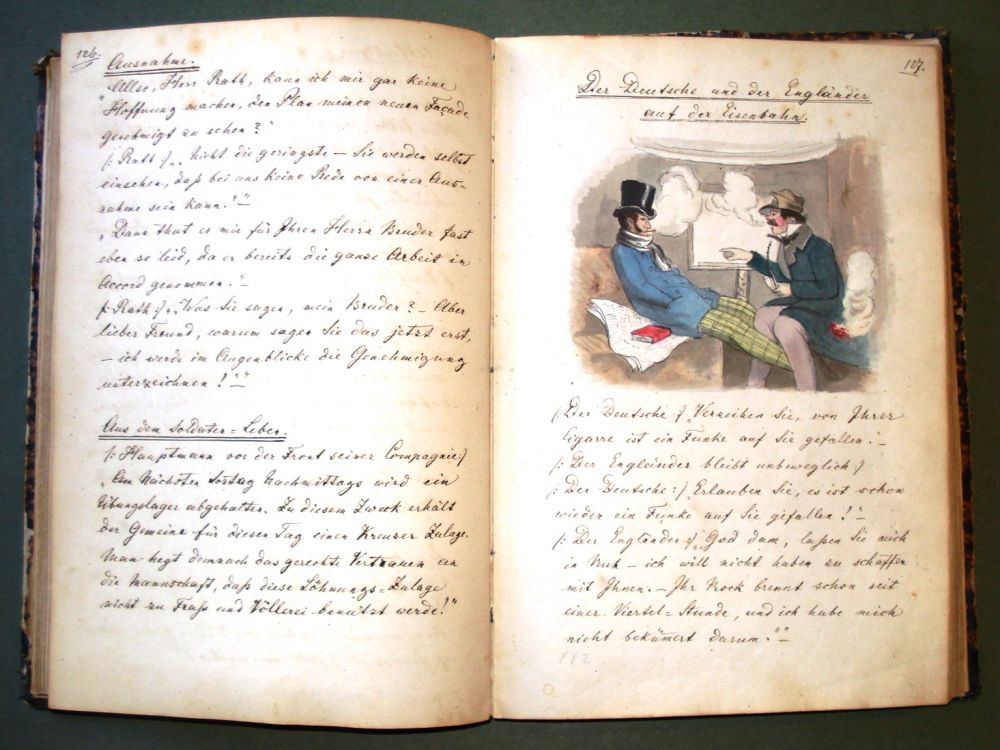 126.
Ausnahme.
„Also, Herr Rath, kann ich mir gar keine
Hoffnung machen, den Plan meinen neuen Façade
genehmigt zu sehen?"
/: Rath :/ „Nicht die geringste — Sie werden selbst
einsehen, daß bei uns keine Rede von einer Aus=
nahme sein kann."—
„Dann that es mir für Ihren Herrn Bruder fast
eben so leid, da er bereits die ganze Arbeit in
Accord genommen."—
/: Rath :/ „Was Sie sagen, mein Bruder? — Aber
lieber Freund, warum sagen Sie das jetzt erst,
— ich werde im Augenblicke die Genehmigung
unterzeichnen!"—
Aus dem Soldaten=Leben.
/: Hauptmann vor der Front seiner Compagnie :/
„Am Nächsten Nachmittags wird ein
Übungslager abgehalten. Zu diesem Zweck erhält
der Gemeine für diesen Tag einen Kreuzer Zulage.
Man hegt demnach das gerechte Vertrauen an
die Mannschaft, daß diese Löhnungs=Zulage
nicht zu Fraß und Völlerei benutzt werde!"
127.
Der Deutsche und der Engländer
auf der Eisenbahn.
/: Der Deutsche :/ Verzeihen Sie, von Ihrer
Cigarre ist ein Funke auf Sie gefallen."—
/: Der Engländer bleibt unbeweglich :/
/: Der Deutsche :/ Erlauben Sie, es ist schon
wieder ein Funke auf Sie gefallen!"—
/: Der Engländer :/ „God dam, laßen Sie mich
in Ruh — ich will nicht haben zu schaffen
mit Ihnen. — Ihr Rock brennt schon seit
einer Viertel=Stunde, und ich habe mich
nicht bekümert darum."—
182